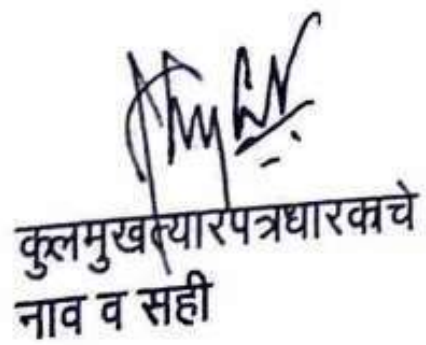 कुलमुखत्यारपत्रधारकाचे
नाव व सही